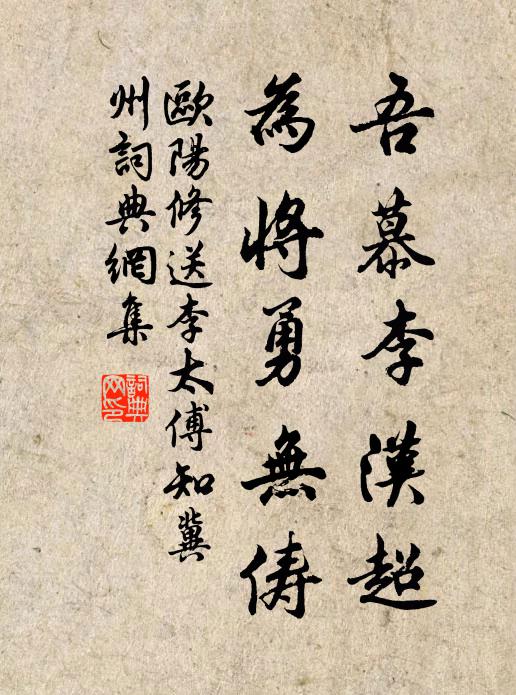 吾慕李漢超
為將勇無儔
歐陽修送李太傅知冀
州詞典網集
詞典
网印